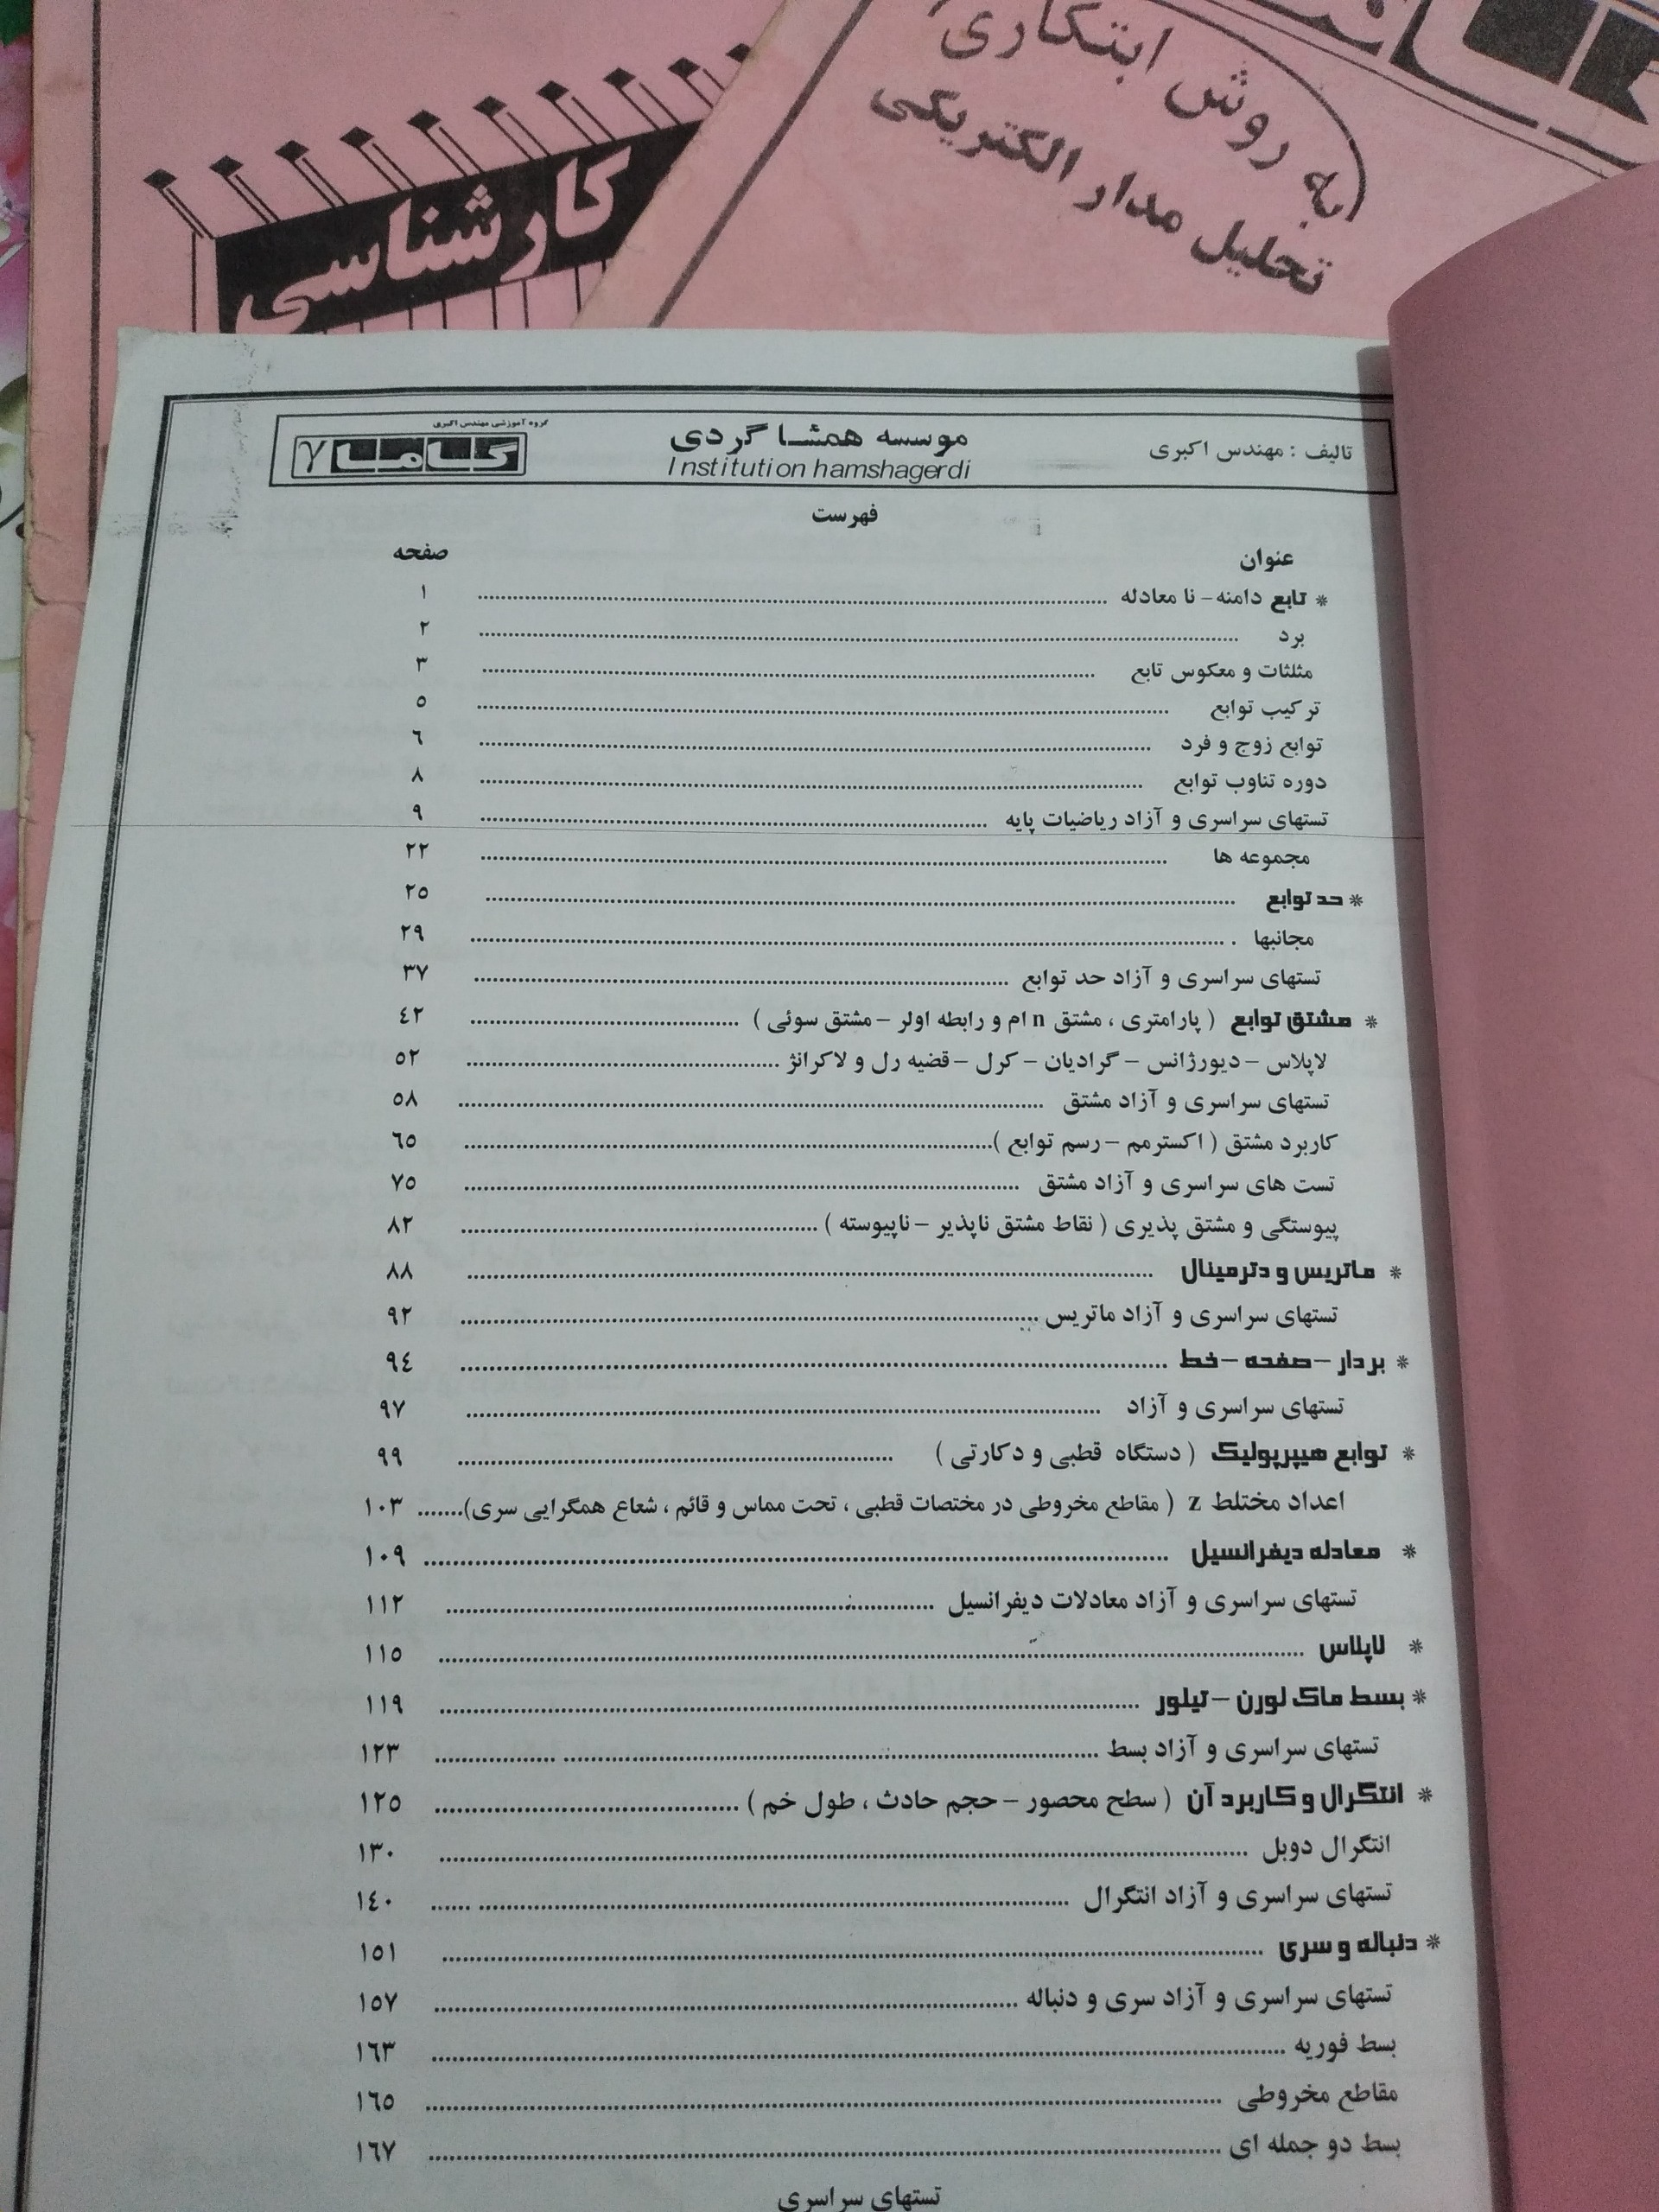 به روش ابتکاری
تحلیل مدار الکتریکی
کارشناسی
تالیف : مهندس اکبری
موسسه همشاگردی
Institution hamshagerdi
گروه آموزشی مهندس اکبری
گاما ۷
فهرست
عنوان صفحه
* تابع دامنه - نا معادله ........ ۱
برد ........ ۲
مثلثات و معکوس تابع ........ ۳
ترکیب توابع ........ ٥
توابع زوج و فرد ........ ٦
دوره تناوب توابع ........ ۸
تستهای سراسری و آزاد ریاضیات پایه ........ ۹
مجموعه ها ........ ۲۲
* حد توابع ........ ۲٥
مجانبها ........ ۲۹
تستهای سراسری و آزاد حد توابع ........ ۳۷
* مشتق توابع ( پارامتری ، مشتق n ام و رابطه اولر - مشتق سوئی ) ........ ٤۲
لاپلاس - دیورژانس - گرادیان - کرل - قضیه رل و لاکرانژ ........ ٥۲
تستهای سراسری و آزاد مشتق ........ ٥۸
کاربرد مشتق ( اکسترمم - رسم توابع ) ........ ٦٥
تست های سراسری و آزاد مشتق ........ ۷٥
پیوستگی و مشتق پذیری ( نقاط مشتق ناپذیر - ناپیوسته ) ........ ۸۲
* ماتریس و دترمینال ........ ۸۸
تستهای سراسری و آزاد ماتریس ........ ۹۲
* بردار - صفحه - خط ........ ۹٤
تستهای سراسری و آزاد ........ ۹۷
* توابع هیپرپولیک ( دستگاه قطبی و دکارتی ) ........ ۹۹
اعداد مختلط z ( مقاطع مخروطی در مختصات قطبی ، تحت مماس و قائم ، شعاع همگرایی سری) ........ ۱۰۳
* معادله دیفرانسیل ........ ۱۰۹
تستهای سراسری و آزاد معادلات دیفرانسیل ........ ۱۱۲
* لاپلاس ........ ۱۱٥
* بسط ماک لورن - تیلور ........ ۱۱۹
تستهای سراسری و آزاد بسط ........ ۱۲۳
* انتگرال و کاربرد آن ( سطح محصور - حجم حادث ، طول خم ) ........ ۱۲٥
انتگرال دوبل ........ ۱۳۰
تستهای سراسری و آزاد انتگرال ........ ۱٤۰
* دنباله و سری ........ ۱٥۱
تستهای سراسری و آزاد سری و دنباله ........ ۱٥۷
بسط فوریه ........ ۱٦۳
مقاطع مخروطی ........ ۱٦٥
بسط دو جمله ای ........ ۱٦۷
تستهای سراسری